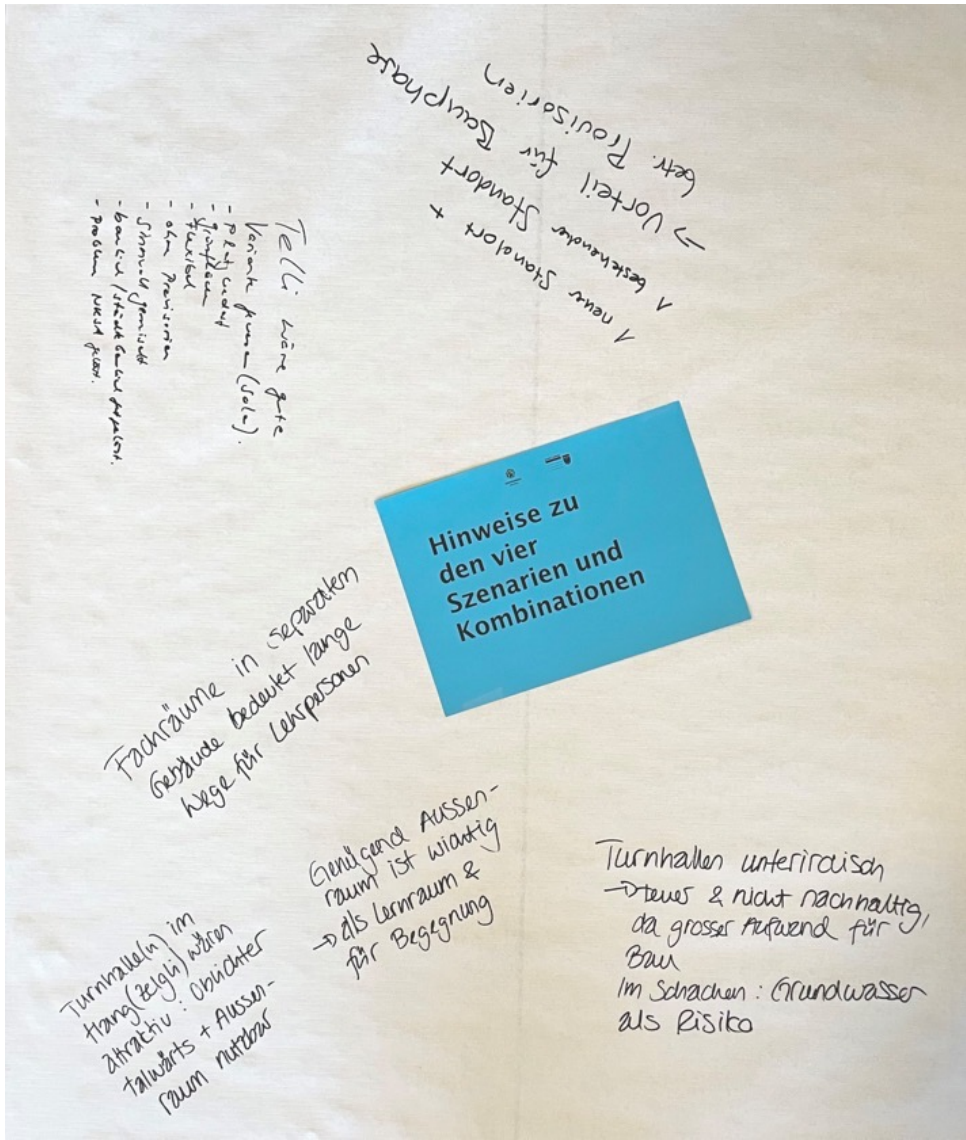 1 neuer Standort +
1 bestehender Standort
→ Vorteil für Bauphase
betr. Provisorien
Telli wäre gute
Variante
- flexibel
- ohne Provisorien
- sinnvoll gemischt
- Problem NKSA gelöst.
Hinweise zu
den vier
Szenarien und
Kombinationen
Fachräume in separatem
Gebäude bedeutet lange
Wege für Lehrpersonen
Genügend Aussen-
raum ist wichtig
→ als Lernraum &
für Begegnung
Turnhalle(n) im
Hang (Zelgli) wären
attraktiv: Oblichter
talwärts + Aussen-
raum nutzbar
Turnhallen unterirdisch
→ teuer & nicht nachhaltig,
da grosser Aufwand für
Bau
Im Schachen: Grundwasser
als Risiko